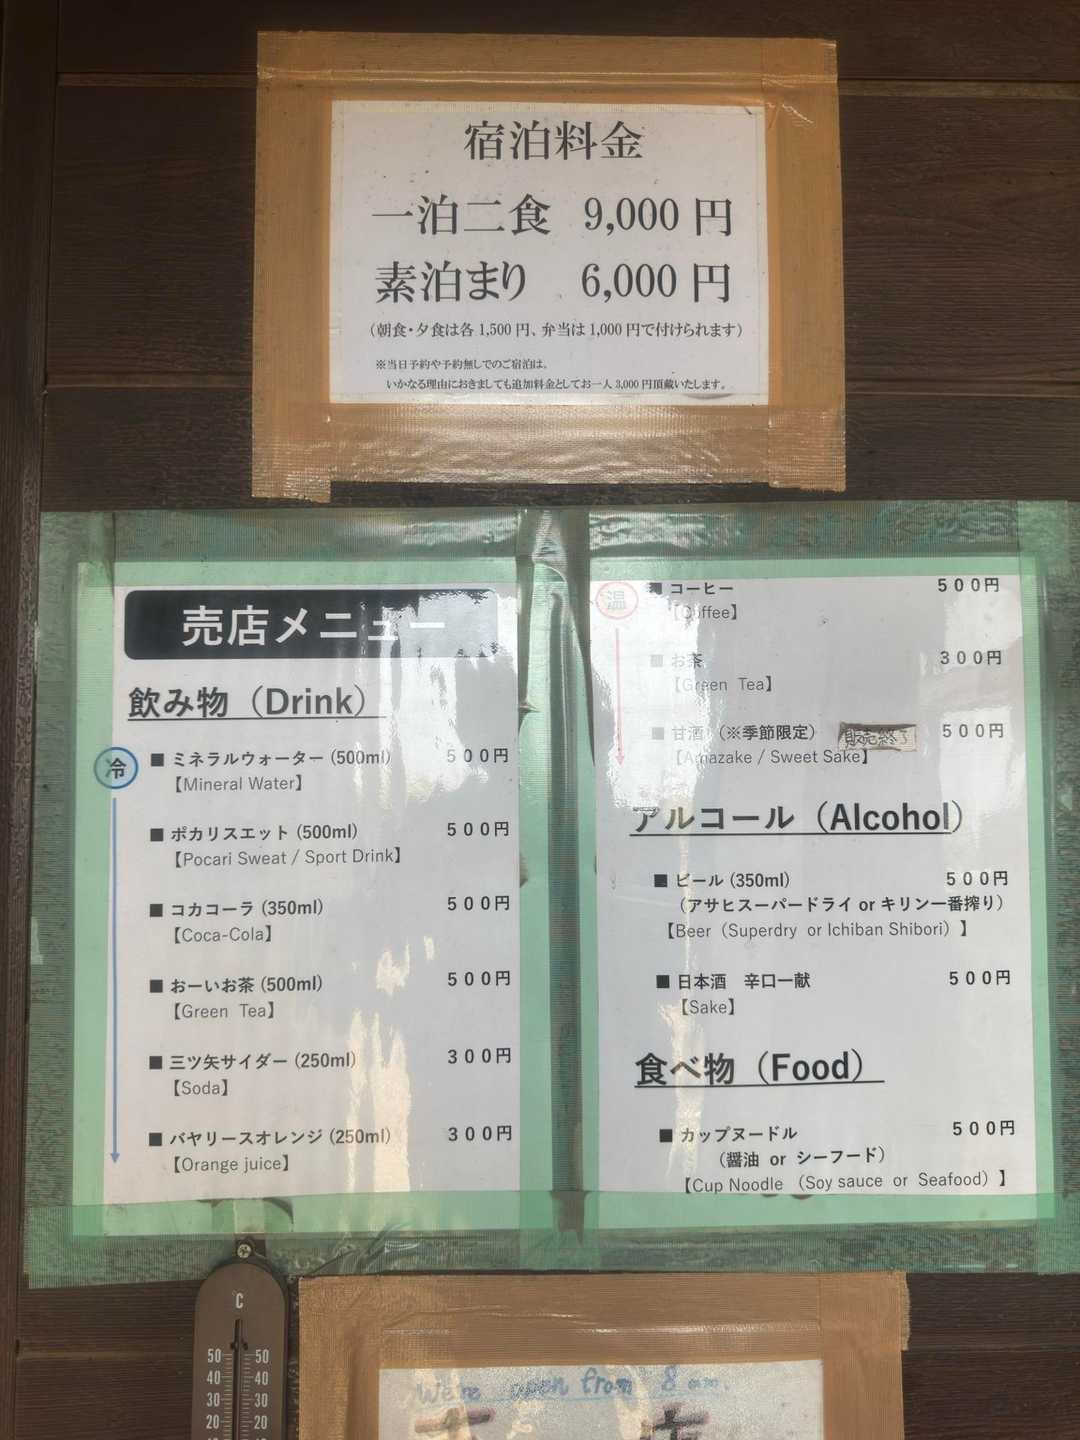 宿泊料金
一泊二食 9,000 円
素泊まり 6,000 円
（朝食・夕食は各 1,500 円、弁当は 1,000 円で付けられます）
※当日予約や予約無しでのご宿泊は、
いかなる理由におきましても追加料金としてお一人 3,000 円頂戴いたします。
売店メニュー
飲み物（Drink）
冷
■ ミネラルウォーター (500ml) ５００円
【Mineral Water】
■ ポカリスエット (500ml) ５００円
【Pocari Sweat / Sport Drink】
■ コカコーラ (350ml) ５００円
【Coca-Cola】
■ おーいお茶 (500ml) ５００円
【Green Tea】
■ 三ツ矢サイダー (250ml) ３００円
【Soda】
■ バヤリースオレンジ (250ml) ３００円
【Orange juice】
温
■ コーヒー ５００円
【Coffee】
■ お茶 ３００円
【Green Tea】
■ 甘酒 （※季節限定） 販売終了 ５００円
【Amazake / Sweet Sake】
アルコール（Alcohol）
■ ビール (350ml) ５００円
（アサヒスーパードライ or キリン一番搾り）
【Beer（Superdry or Ichiban Shibori）】
■ 日本酒 辛口一献 ５００円
【Sake】
食べ物（Food）
■ カップヌードル ５００円
（醤油 or シーフード）
【Cup Noodle （Soy sauce or Seafood）】
℃
50 50
40 40
30 30
20 20
We're open from 8 am.